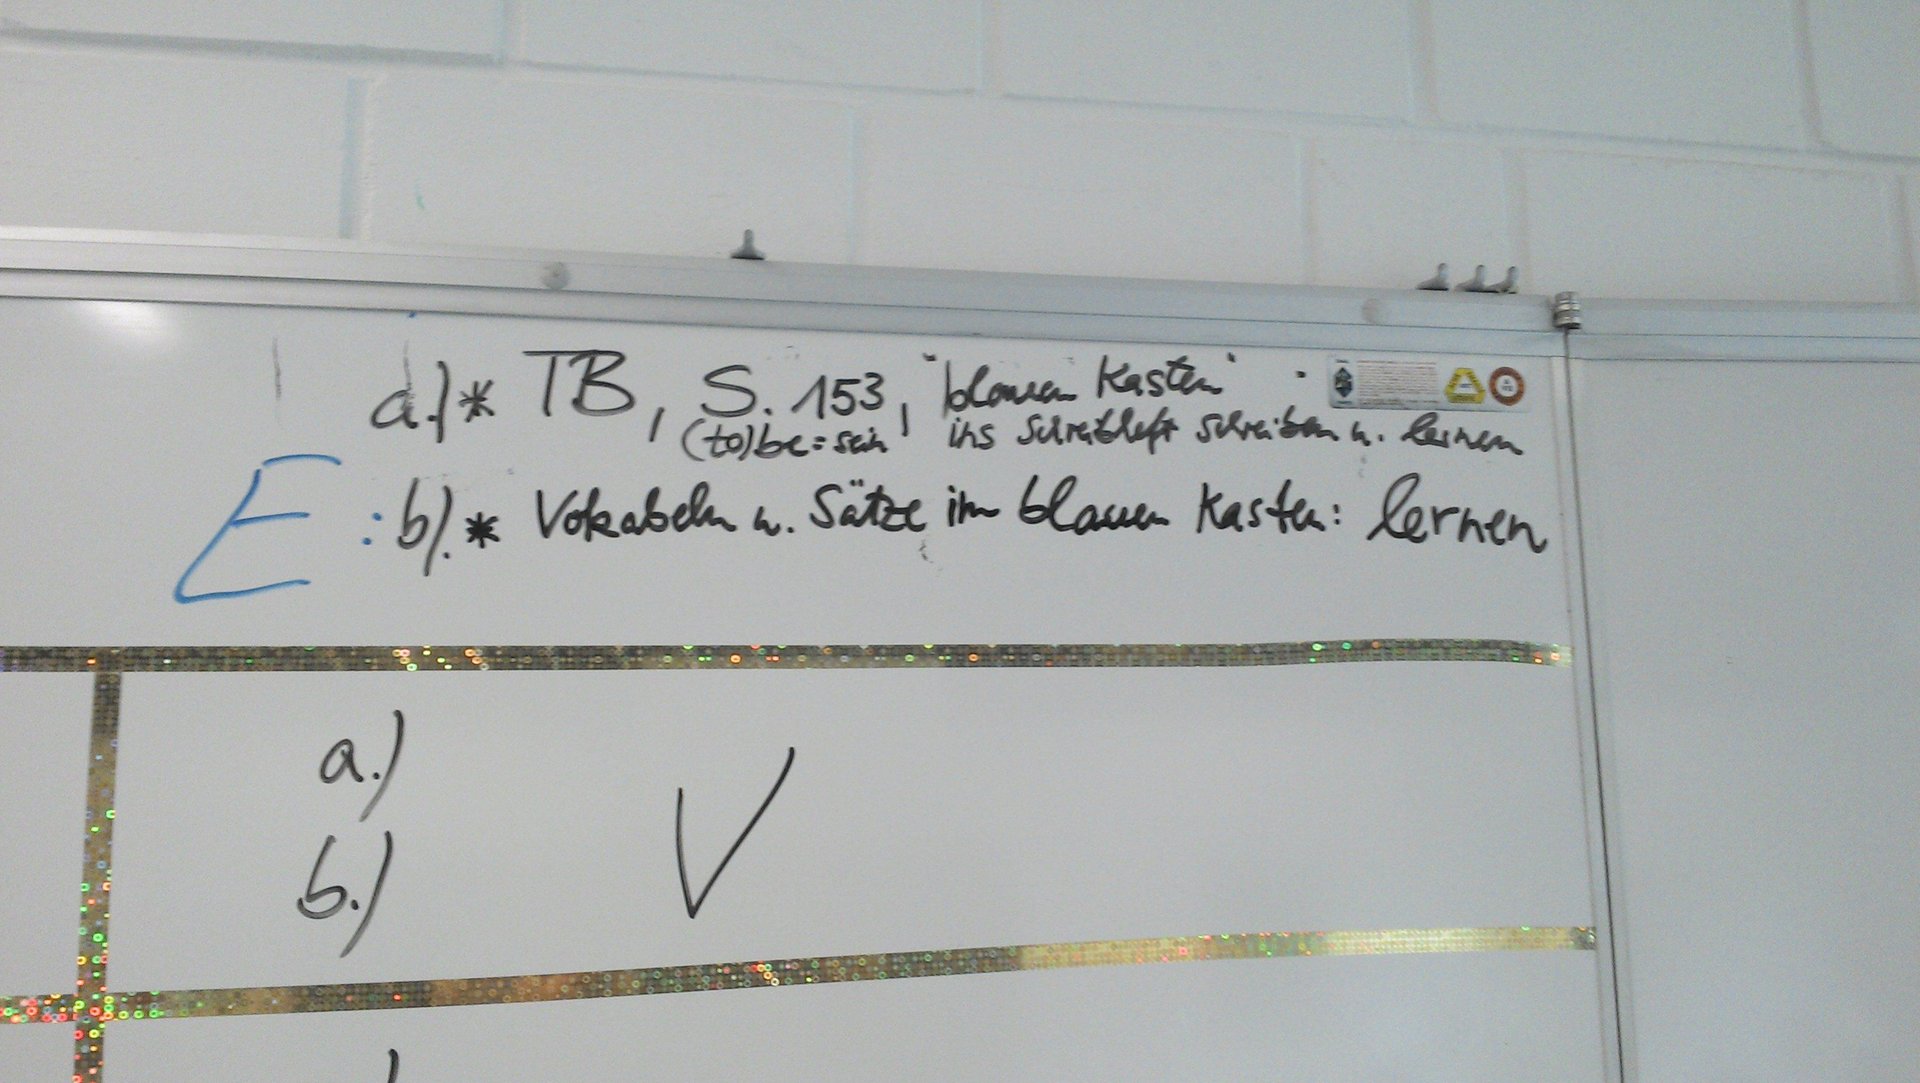 a.) * TB, S. 153, "blauen Kasten"
(to) be = sein ins Schreibheft schreiben u. lernen
E : b). * Vokabeln u. Sätze im blauen Kasten: lernen
a.)
b.)